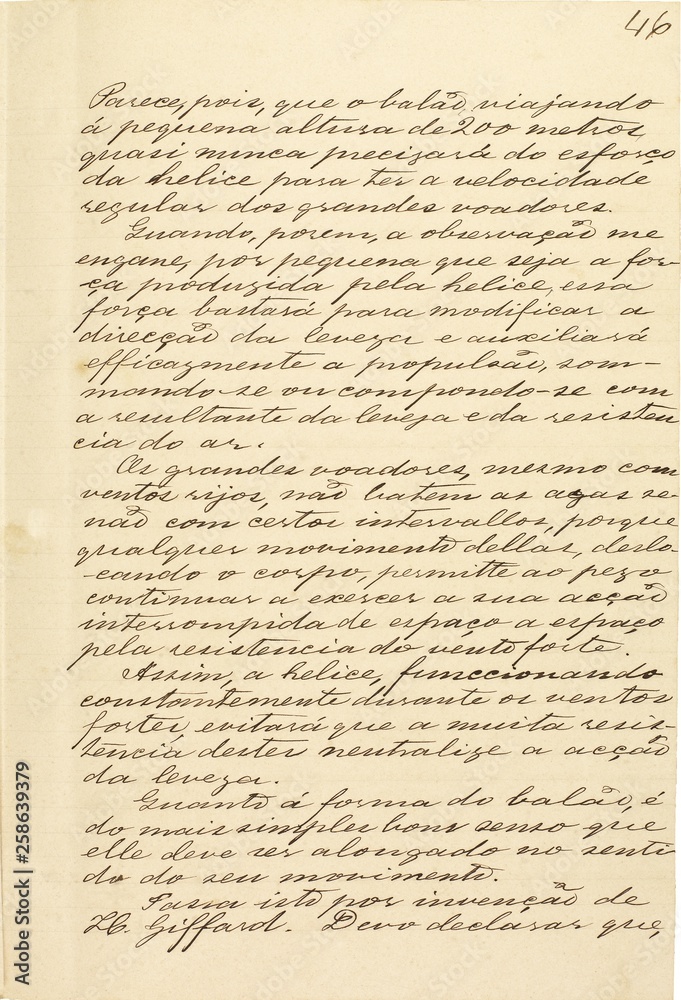 46
Parece, pois, que o balão, viajando
á pequena altura de 200 metros,
quasi nunca precizará do esforço
da helice para ter a velocidade
regular dos grandes voadores.
Quando, porem, a observação me
engane, por pequena que seja a for-
ça produzida pela helice, essa
força bastará para modificar a
direcção da leveza e auxiliará
efficazmente a propulsão, som-
mando-se ou compondo-se com
a resultante da leveza e da resisten
cia do ar.
Os grandes voadores, mesmo com
ventos rijos, não batem as azas se-
não com certos intervallos, porque
qualquer movimento dellas, deslo-
-cando o corpo, permitte ao pezo
continuar a exercer a sua acção
interrompida de espaço a espaço
pela resistencia do vento forte.
Assim, a helice, funccionando
constantemente durante os ventos
fortes, evitará que a muita resis-
tencia destes neutralize a acção
da leveza.
Quanto á forma do balão, é
do mais simples bom senso que
elle deve ser alongado no senti
do do seu movimento.
Passa isto por invenção de
H. Giffard. Devo declarar que,
Adobe Stock | #258639379